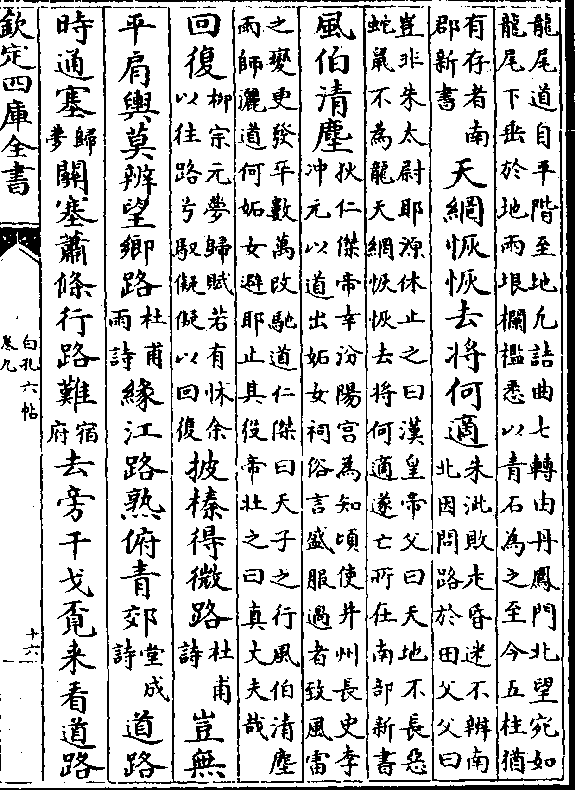 龍尾道自平階至地凡詰曲七轉由丹鳳門北望宛如
龍尾下垂於地兩垠欄檻悉以青石為之至今五柱猶
有存者南
郡新書
天網恢恢去将何適
朱泚敗走昏迷不辨南
北因問路於田父父曰
豈非朱太尉耶源休止之曰漢皇帝父曰天地不長惡
蛇鼠不為龍天網恢恢去將何適遂亡所在南部新書
風伯清塵
狄仁傑帝幸汾陽宮為知頃使并州長史李
冲元以道出妬女祠俗言盛服過者致風雷
之變更發卒數萬改馳道仁傑曰天子之行風伯清塵
雨師灑道何妬女避耶止其役帝壯之曰真丈夫哉
回復
柳宗元夢歸賦若有怵余
以往路兮馭儗儗以回復
披榛得微路
杜甫
詩
豈無
平肩輿莫辨望鄉路
杜甫
雨詩
緣江路熟俯青郊
堂成
詩
道路
時通塞
歸
夢
關塞蕭條行路難
宿
府
去旁干戈覓来看道路
欽定四庫全書
白孔六帖
卷九
十六